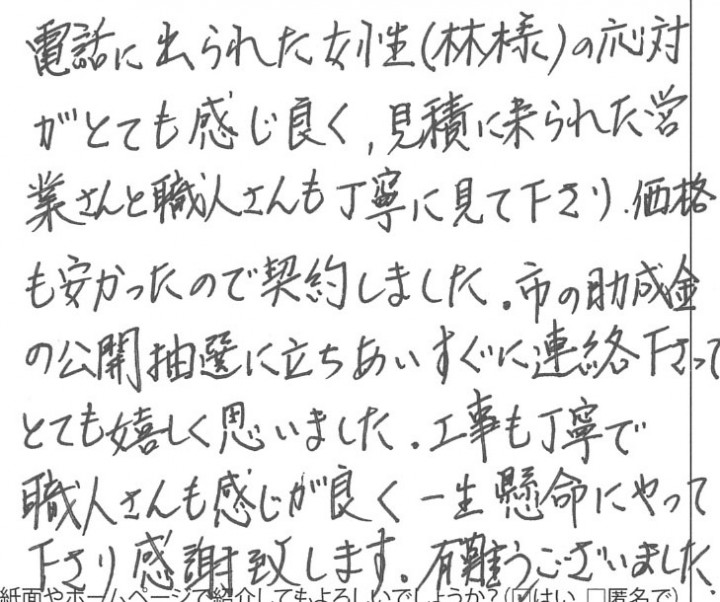 電話に出られた女性(林様)の応対
がとても感じ良く,見積に来られた営
業さんと職人さんも丁寧に見て下さり.価格
も安かったので契約しました。市の助成金
の公開抽選に立ちあいすぐに連絡下さって
とても嬉しく思いました。工事も丁寧で
職人さんも感じが良く一生懸命にやって
下さり感謝致します。有難うございました
紙面やホームページで紹介してもよろしいでしょうか?(☑はい □匿名で)